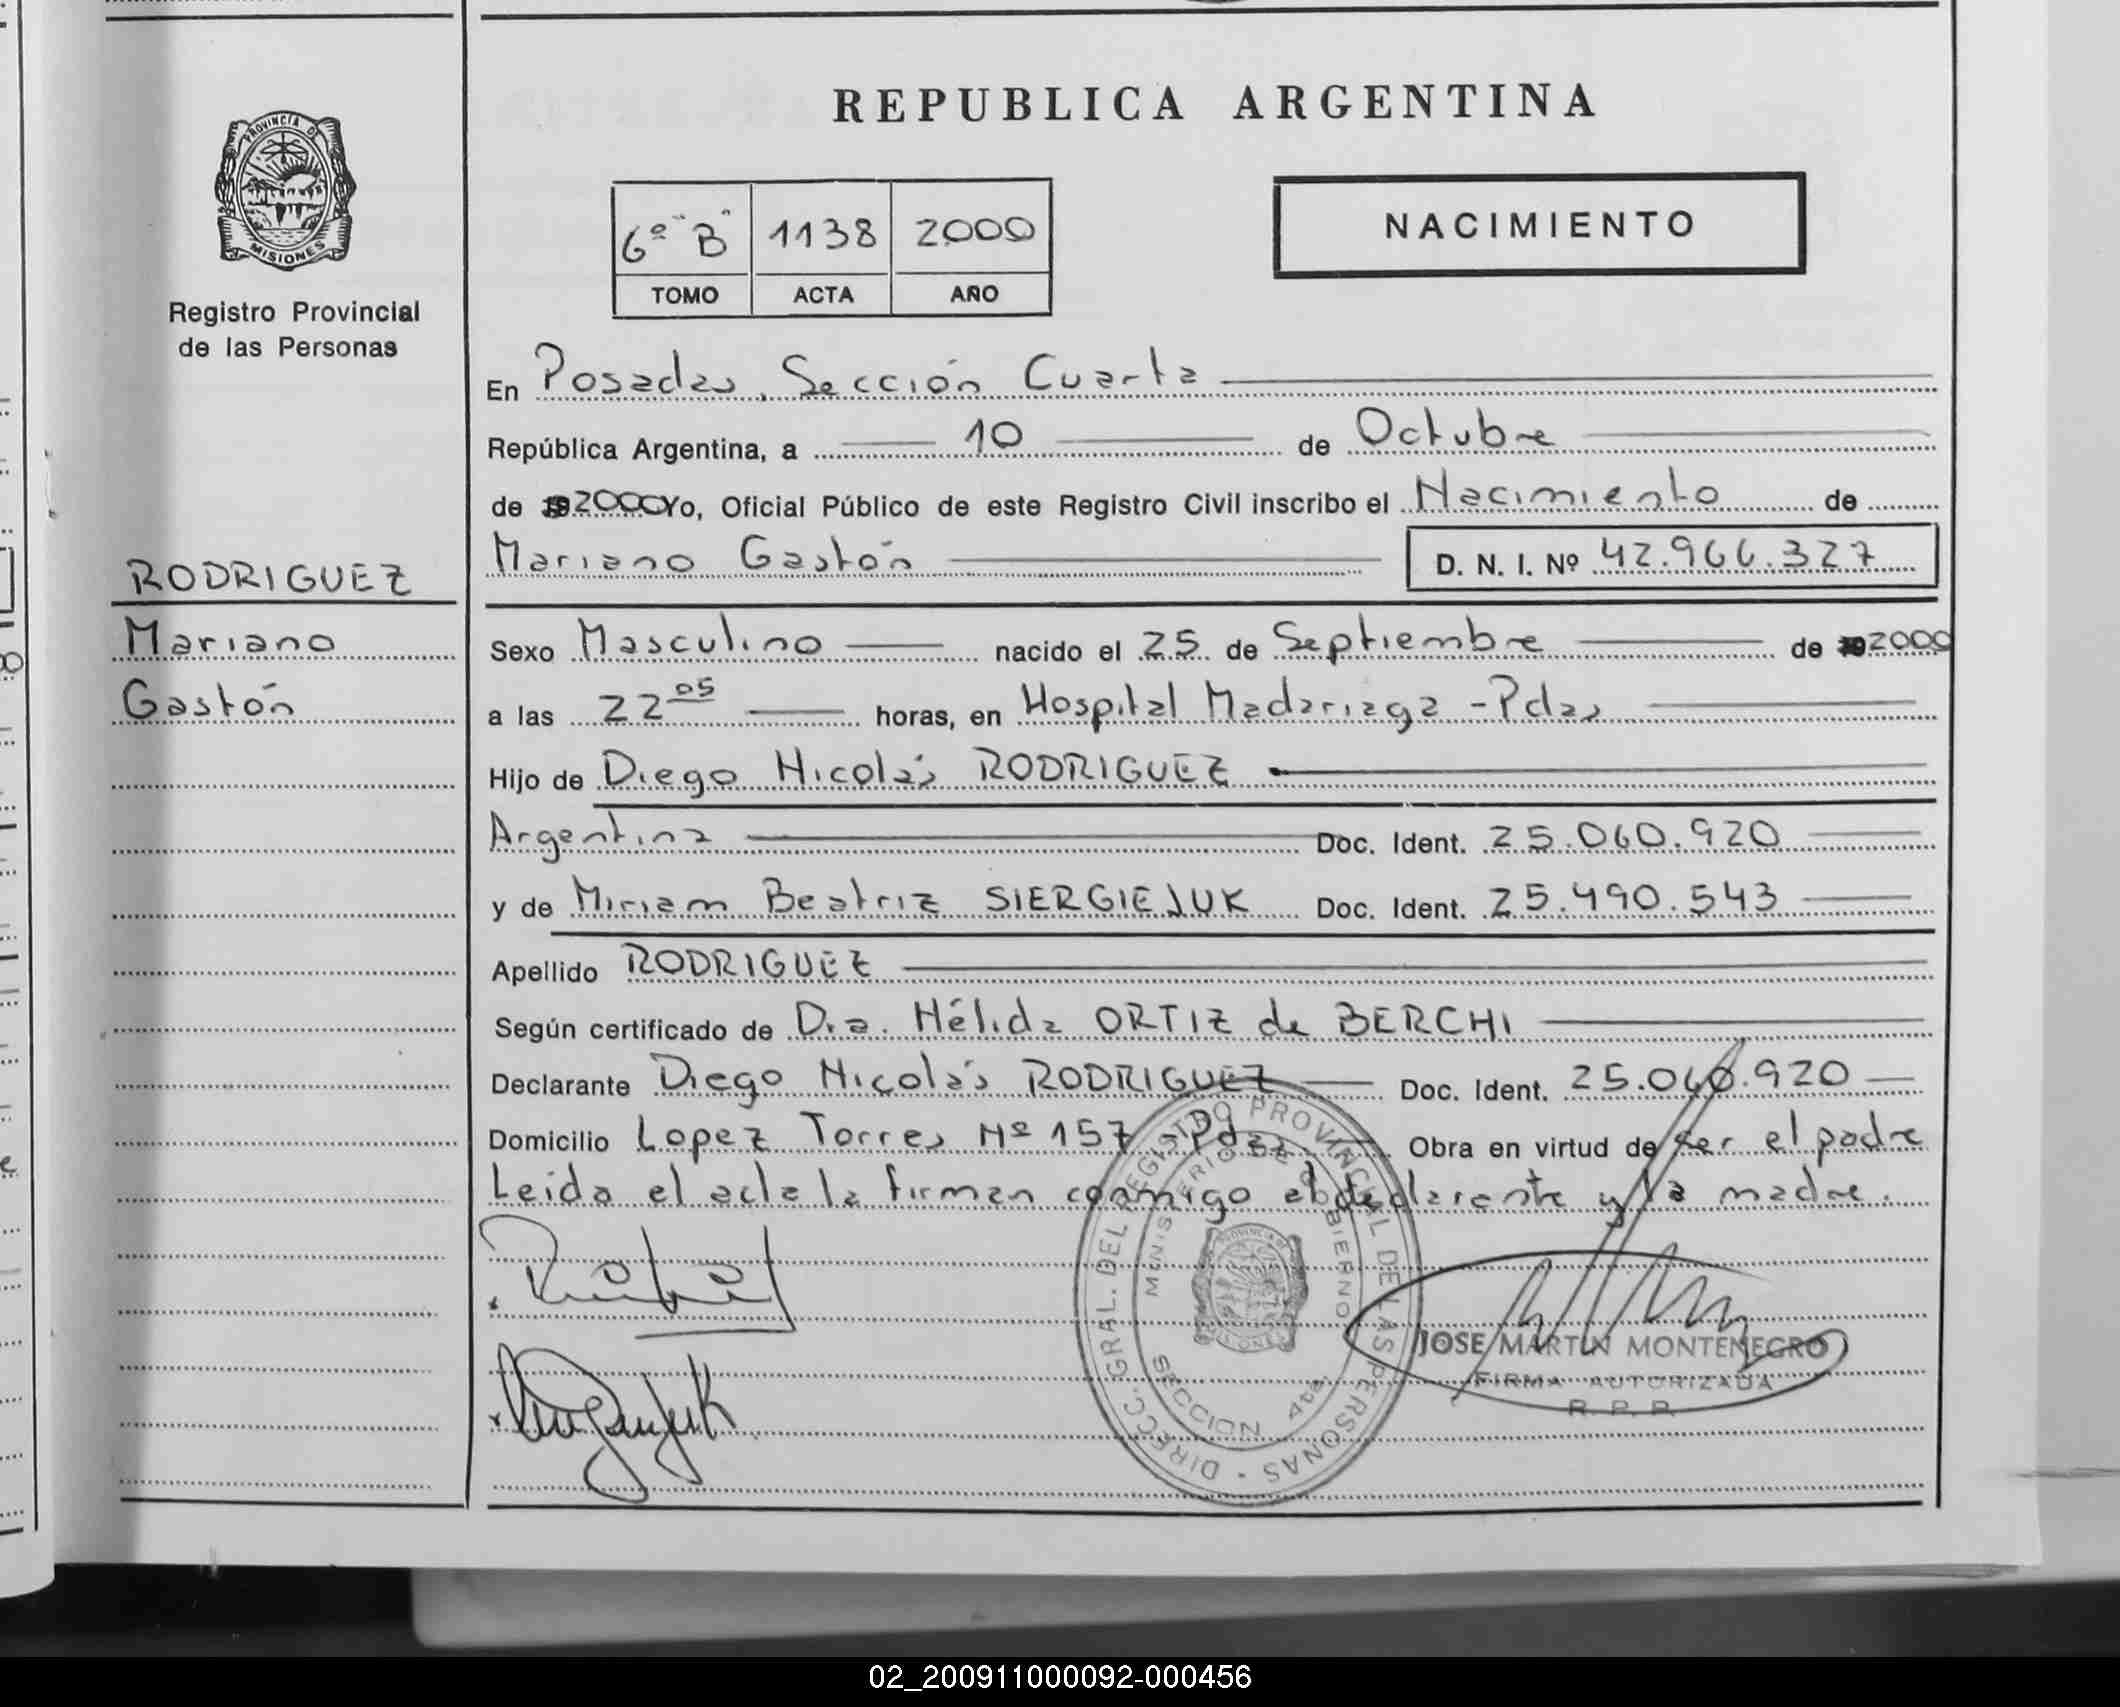 REPUBLICA ARGENTINA
PROVINCIA DE
MISIONES
Registro Provincial
de las Personas
6º "B" 1138 2000
TOMO ACTA AÑO
NACIMIENTO
En Posadas, Sección Cuarta
República Argentina, a 10 de Octubre
de 19 2000 Yo, Oficial Público de este Registro Civil inscribo el Nacimiento de
Mariano Gastón D. N. I. Nº 42.966.327
RODRIGUEZ
Mariano
Gastón
Sexo Masculino nacido el 25 de Septiembre de 19 2000
a las 22 05 horas, en Hospital Madariaga - Pdas
Hijo de Diego Nicolás RODRIGUEZ
Argentina Doc. Ident. 25.060.920
y de Miriam Beatriz SIERGIEJUK Doc. Ident. 25.490.543
Apellido RODRIGUEZ
Según certificado de Dra. Hélida ORTIZ de BERCHI
Declarante Diego Nicolás RODRIGUEZ Doc. Ident. 25.060.920
Domicilio Lopez Torres Nº 157 - Pdas Obra en virtud de ser el padre
Leida el acta la firman conmigo el declarante y la madre.
DIRECC. GRAL. DEL REGISTRO PROVINCIAL DE LAS PERSONAS
MINISTERIO DE GOBIERNO
SECCION 4ta.
JOSE MARTIN MONTENEGRO
FIRMA AUTORIZADA
R. P. P.
02_200911000092-000456